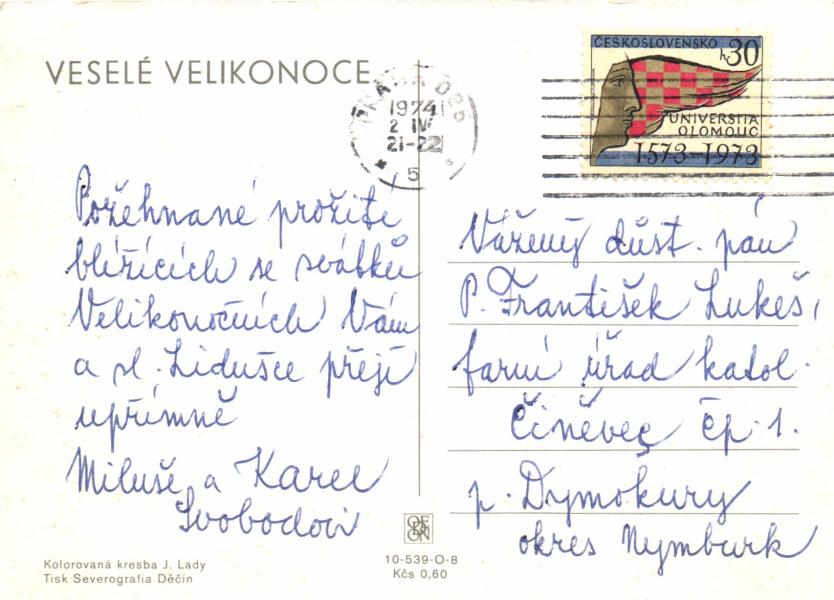 VESELÉ VELIKONOCE
PRAHA 025
1974
2 IV
21-22
5
ČESKOSLOVENSKO
h 30
UNIVERSITA
OLOMOUC
1573-1973
Požehnané prožití
blížících se svátků
Velikonočních Vám
a sl. Lidušce přejí
upřímně
Miluše a Karel
Svobodovi
Vážený důst. pán
P. František Lukeš,
farní úřad katol.
Činěves čp. 1.
p. Dymokury
okres Nymburk
ORBIS
Kolorovaná kresba J. Lady
Tisk Severografia Děčín
10-539-O-8
Kčs 0,60